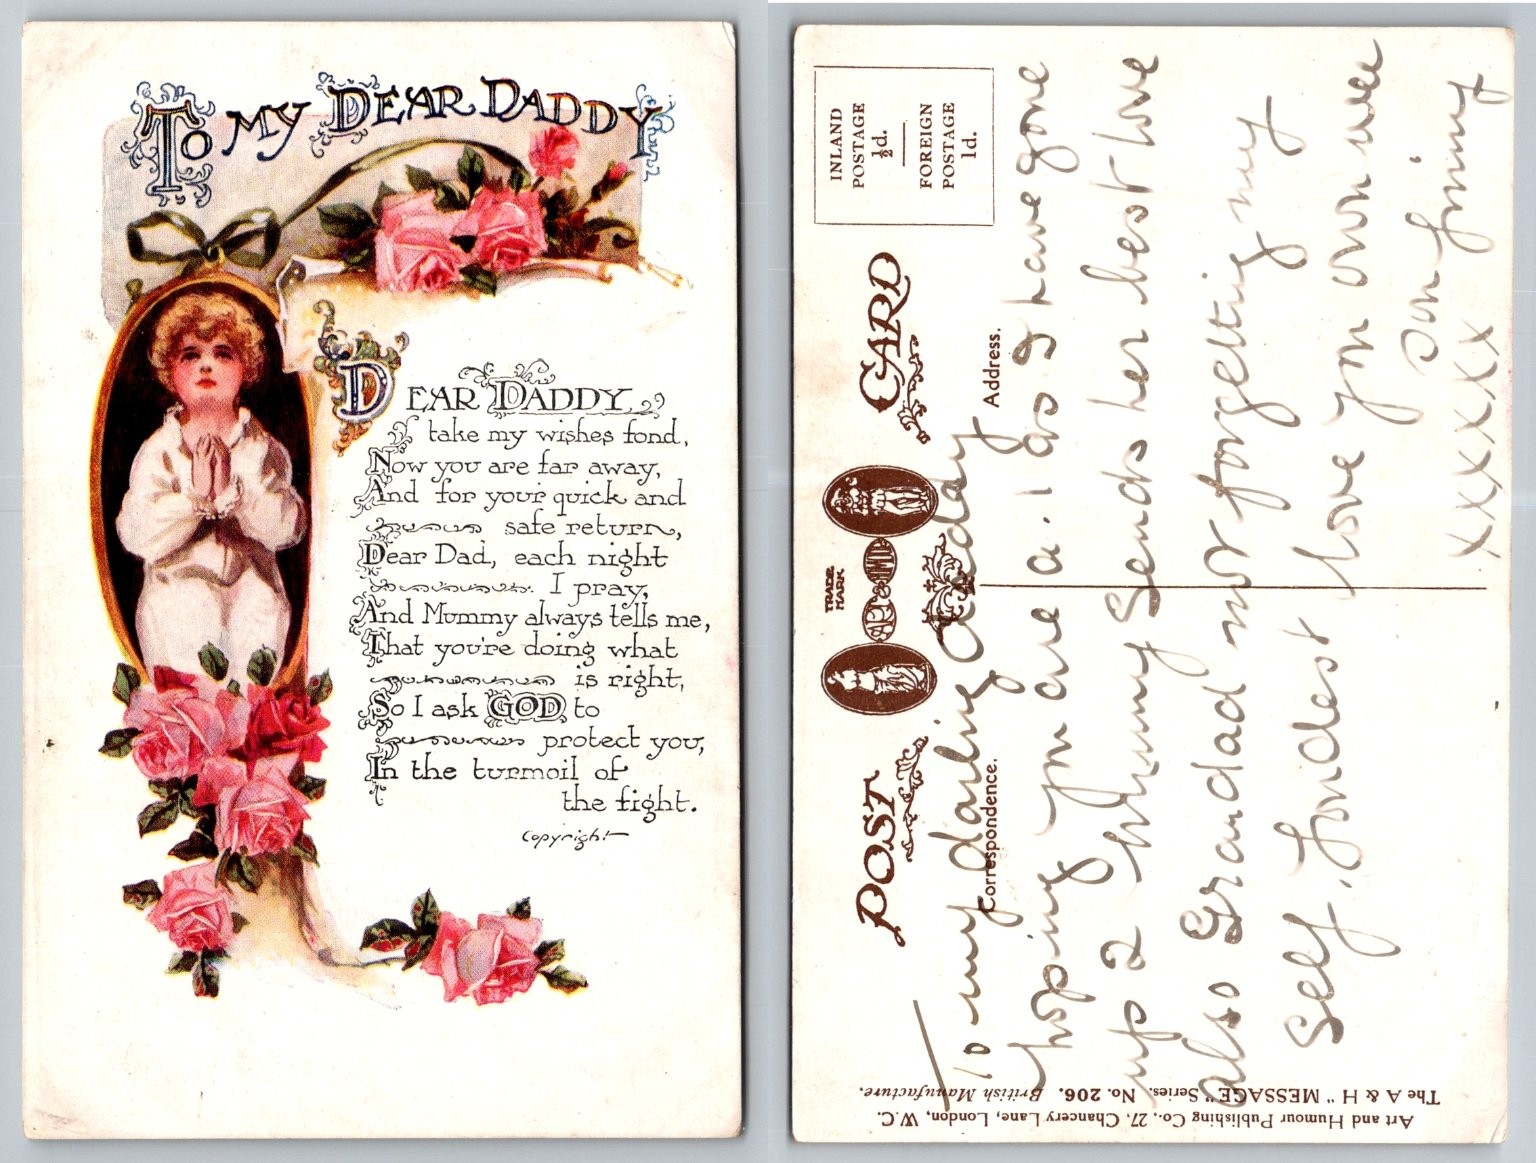 TO MY DEAR DADDY
DEAR DADDY
take my wishes fond,
Now you are far away,
And for your quick and
safe return,
Dear Dad, each night
I pray,
And Mummy always tells me,
That you're doing what
is right,
So I ask GOD to
protect you,
In the turmoil of
the fight.
Copyright
POST CARD
TRADE MARK
ART AND HUMOUR
INLAND
POSTAGE
½d.
FOREIGN
POSTAGE
1d.
Correspondence.
Address.
To my darling daddy
hoping you are a.1 as I have gone
up 2 Mummy Sends her best love
also Grandad not forgetting my
Self. Fondest love you own wee
son Jimmy
xxxxxx
The A & H "MESSAGE" Series. No. 206. British Manufacture.
Art and Humour Publishing Co., 27, Chancery Lane, London, W.C.